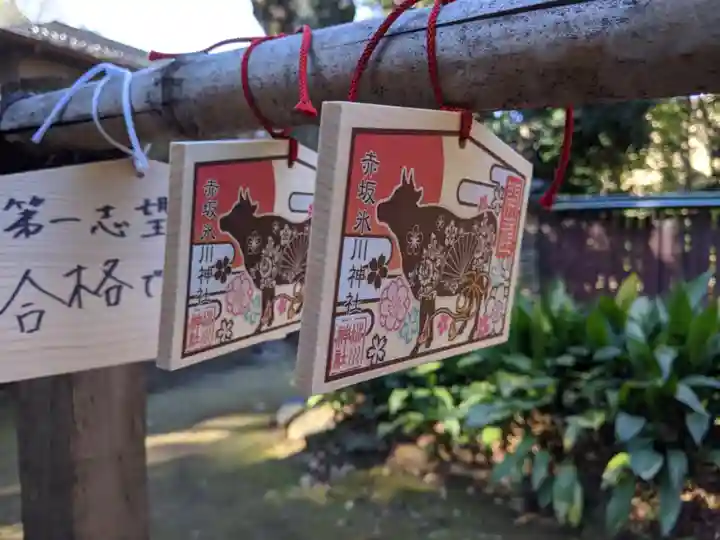 第一志望
合格で
赤坂氷川神社
赤坂氷川神社